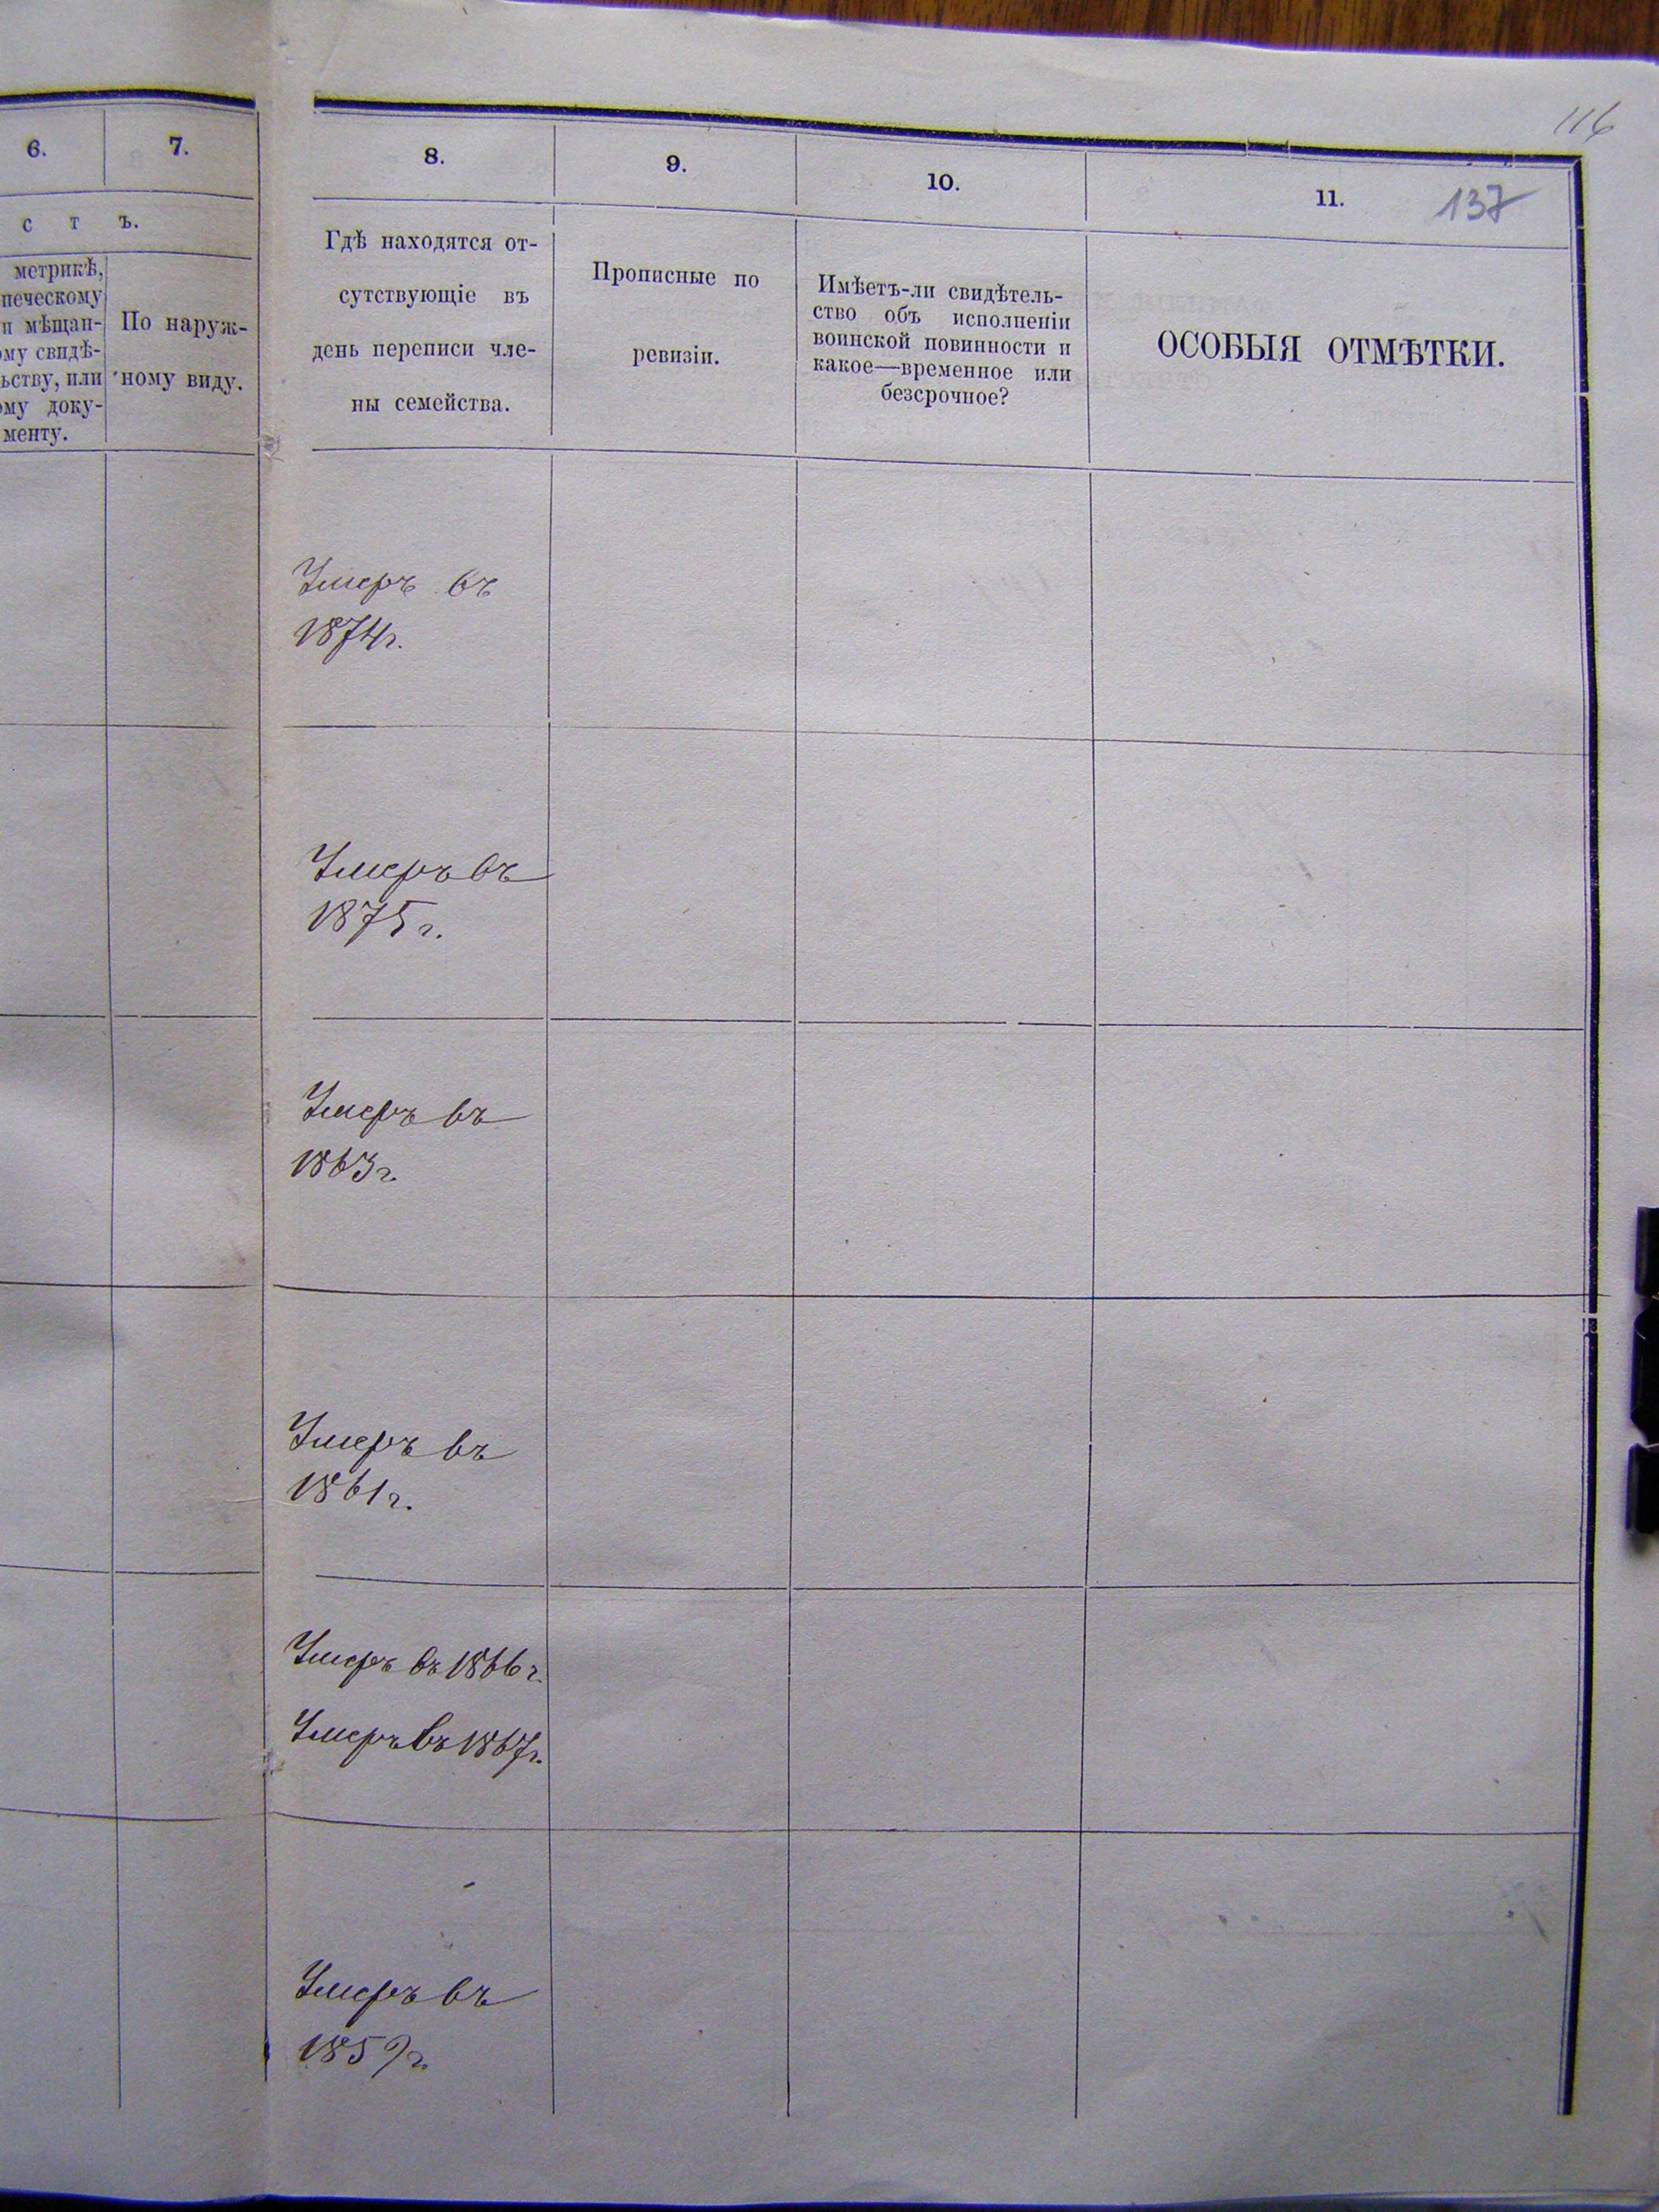 116
6.
7.
8.
9.
10.
11.
137
с т ъ.
метрикѣ,
печескому
и мѣщан-
ому свидѣ-
ьству, или
ому доку-
менту.
По наруж-
ному виду.
Гдѣ находятся от-
сутствующіе въ
день переписи чле-
ны семейства.
Прописные по
ревизіи.
Имѣетъ-ли свидѣтель-
ство объ исполненіи
воинской повинности и
какое—временное или
безсрочное?
ОСОБЫЯ ОТМѢТКИ.
Умеръ въ
1874г.
Умеръ въ
1875г.
Умеръ въ
1863г.
Умеръ въ
1861г.
Умеръ въ 1866г.
Умеръ въ 1867г.
Умеръ въ
1859г.